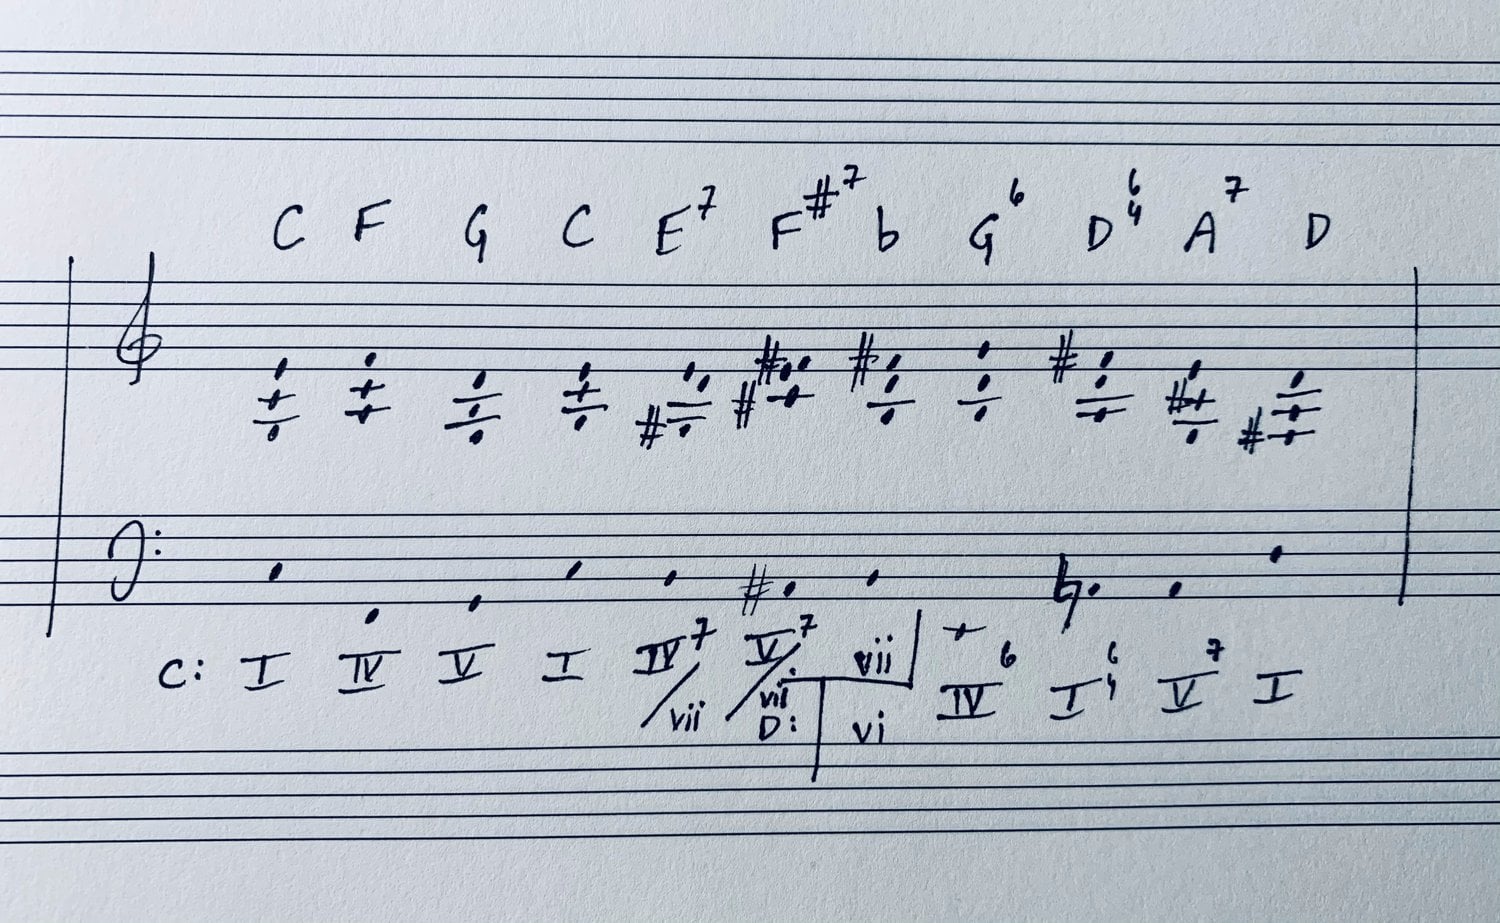 C F G C E⁷ F#⁷ b G⁶ D⁶₄ A⁷ D
C: I IV V I IV⁷/vii V⁷/vii vii
D: vi IV⁶ I⁶₄ V⁷ I